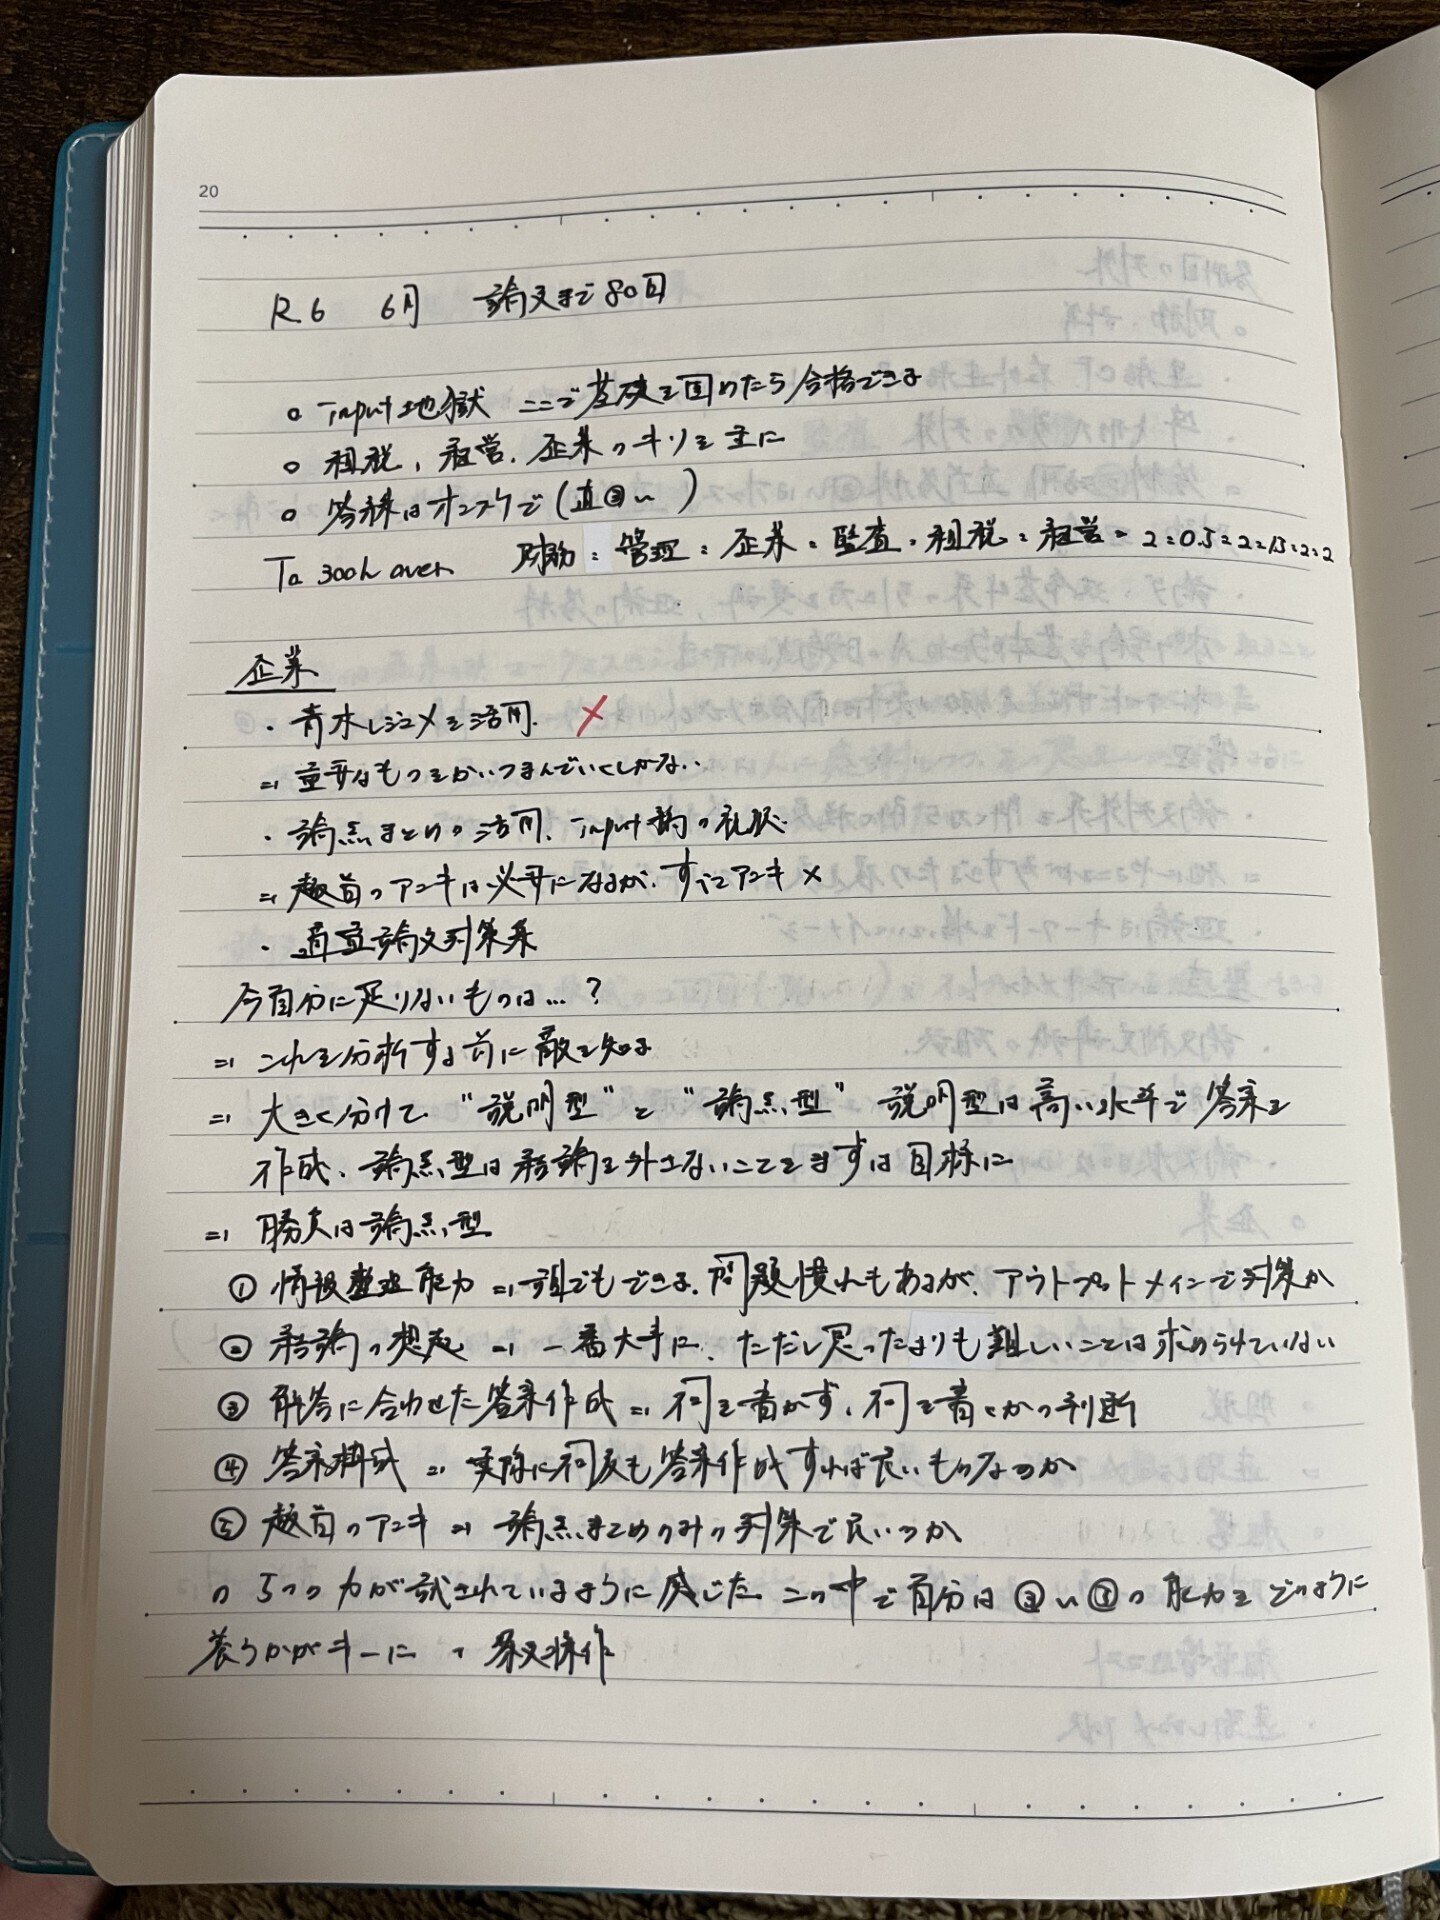 20
R6 6月 論文まで80日
○ input地獄 ここで基礎を固めたら合格できる
○ 租税、経営、企業のキソを主に
○ 答練はオンスケで(直②〜)
To 300h over 財務:管理:企業:監査:租税:経営=2:0.5:2:1.5:2:2
企業
・青木レジュメを活用. ×
⇒ 重要なものをかいつまんでいくしかない
・論点まとめの活用、input特の
⇒ 趣旨のアンキは必要になるが、すべてアンキ×
・直宣論文対策集
今自分に足りないものは…?
⇒ これを分析する前に敵を知る
⇒ 大きく分けて "説明型"と"論点型" 説明型は高い水準で答案を
作成、論点型は結論を外さないことをまずは目標に
⇒ 勝負は論点型
① 情報整理能力 ⇒ 誰でもできる.問題慣れもあるが、アウトプットメインで対策か
② 結論の想起 ⇒ 一番大事に、ただし思ったよりも難しいことは求められていない
③ 解答に合わせた答案作成 ⇒ 何を書かず、何を書くかの判断
④ 答案構成 ⇒ 実際に何度も答案作成すれば良いものなのか
⑤ 趣旨のアンキ ⇒ 論点まとめのみの対策で良いのか
の5つの力が試されているように感じた この中で自分は②〜⑤の能力をどのように
養うかがキーに